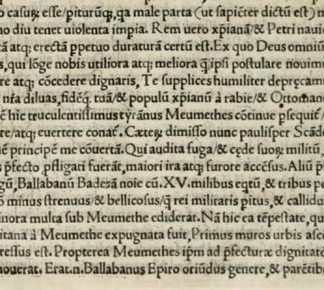 o casuȝ esse/piturūq, qa male parta (ut sapiēter dictū est) m
no diu tenet uiolenta impia. Rem uero xp̄ianā/& Petri naui
atq; erectā ꝑpetuo duraturā certū est. Ex quo Deus omniū
s, qui lōge nobis utiliora atq; meliora q̄ ipsi postulare nouim
re atq; cōcedere dignaris, Te supplices humiliter deprecam
nr̄a diluas, fidēq; tuā/& populū xp̄ianū à rabie/& Ottoman
m hic truculentissimus tyrānus Meumethes cōtinue ꝑsequit̄/
re/atq; euertere conat̄. Cæteȝ dimisso nunc paulisper Scād
ue principē me cōuertā. Qui audita fuga/& cęde suoȝ militū
s ꝓfecto ꝓfligati fuerāt, maiori ira atq; furore accēsus. Aliū p
gū, Ballabanū Baderā noīe cū .XV. milibus eqtū, & tribus p
ō minus strenuus/& bellicosus/q̄ rei militaris pitus, & callidu
inora multa sub Meumethe ediderat. Nā hic ea tēpestate, qu
itana à Meumethe expugnata fuit, Primus muros urbis asce
ressus est. Propterea Meumethes ipm ad ꝓfecturæ dignitatē
mouerat. Erat.n. Ballabanus Epiro oriūdus genere, & parētib